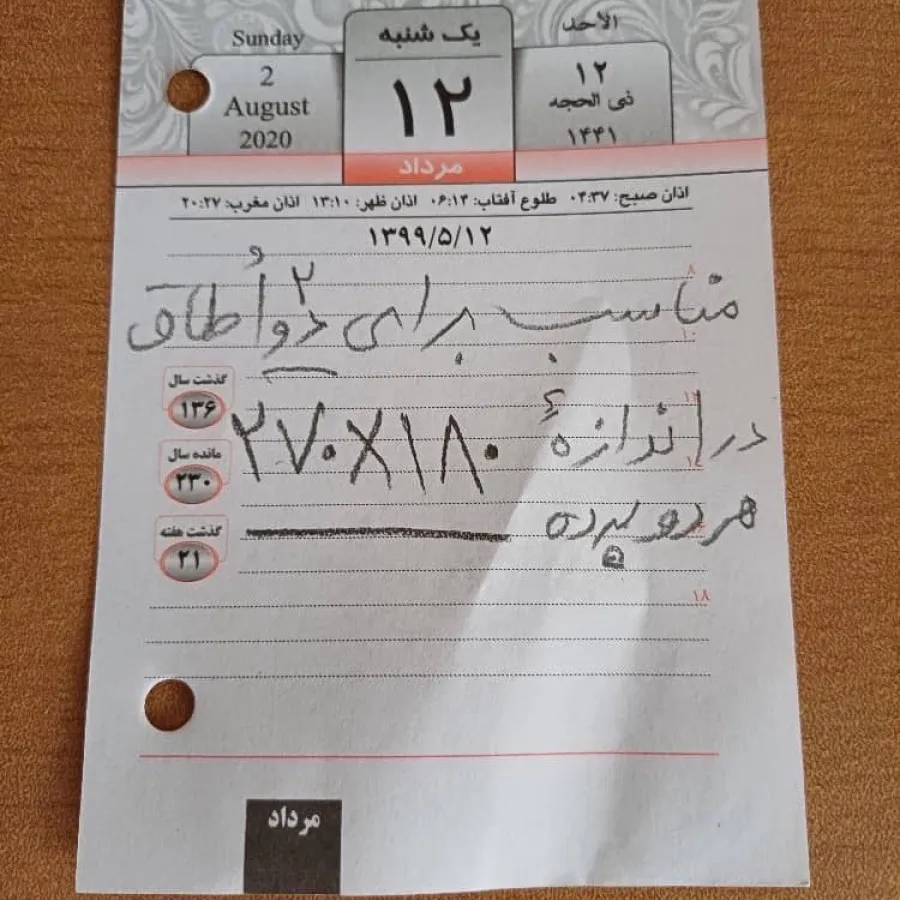 Sunday
2
August
2020
یک شنبه
۱۲
مرداد
الاحد
۱۲
ذی الحجه
۱۴۴۱
اذان صبح: ۰۴:۳۷ طلوع آفتاب: ۰۶:۱۴ اذان ظهر: ۱۳:۱۰ اذان مغرب: ۲۰:۲۷
۱۳۹۹/۵/۱۲
۸
مناسب برای دو ۲ اُطاق
و
۱۰
گذشت سال
۱۳۶
۱۲
در اندازهٔ ۲۷۰×۱۸۰
۱۴
مانده سال
۲۳۰
هر دو پرده
گذشت هفته
۲۱
۱۸
مرداد